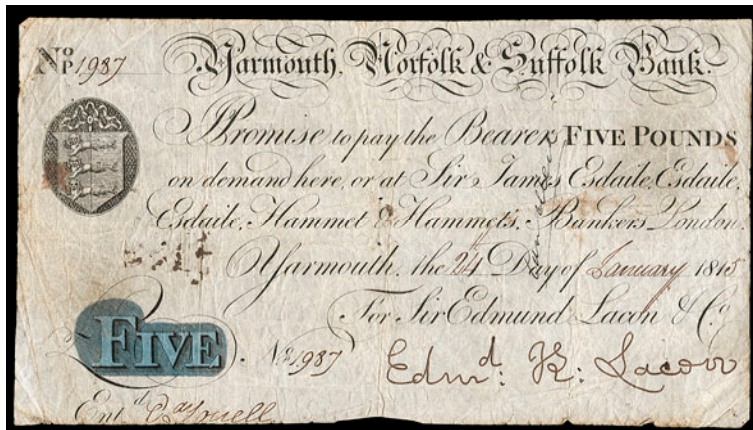 No P 1987 Yarmouth, Norfolk & Suffolk Bank.
I Promise to pay the Bearer FIVE POUNDS
on demand here, or at Sir James Esdaile, Esdaile,
Esdaile, Hammet & Hammets, Bankers London.
Yarmouth, the 24 Day of January 1815
For Sir Edmund Lacon & Co.
FIVE. No 1987 Edmd: K: Lacon
Entd